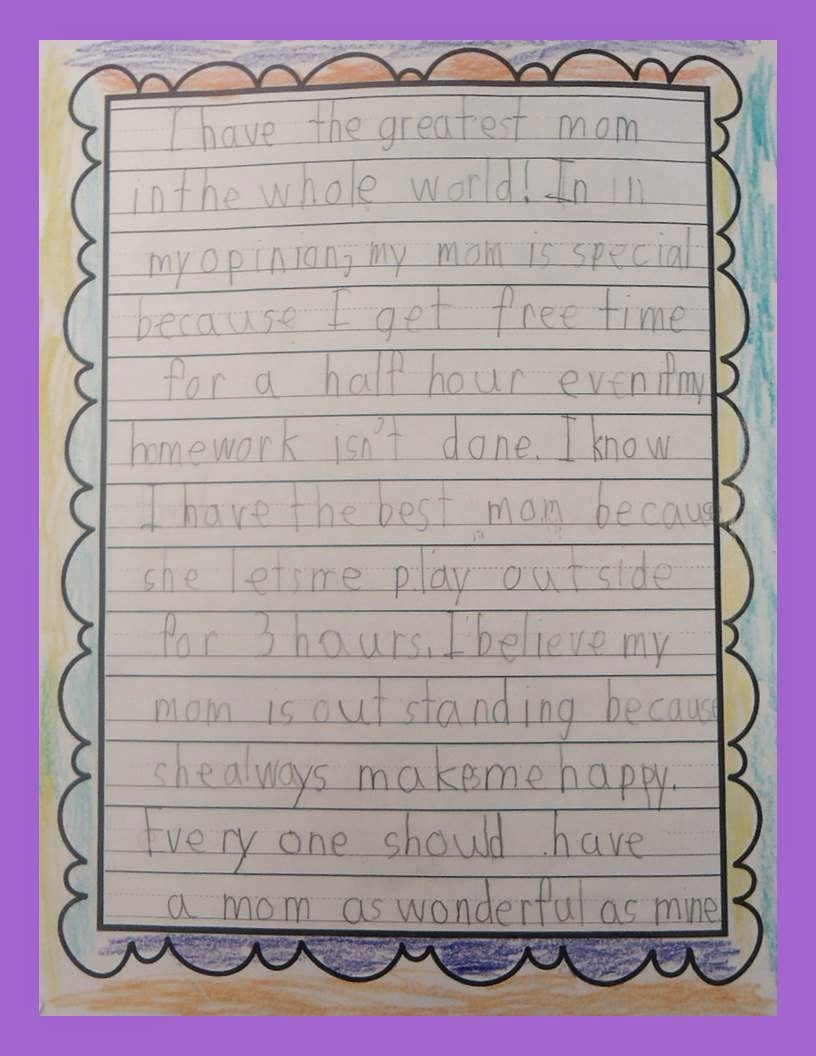 I have the greatest mom
in the whole world! In in
my opinion, my mom is special
because I get free time
for a half hour even if my
homework isn't done. I know
I have the best mom because
she lets me play outside
for 3 hours. I believe my
mom is out standing because
she always makes me happy.
Every one should have
a mom as wonderful as mine